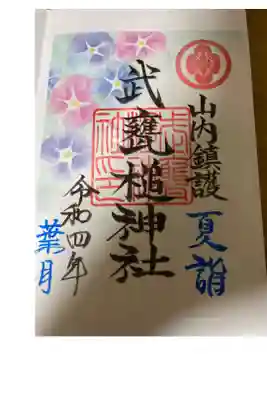 山内鎮護
夏詣
武甕槌神社
令和四年
葉月